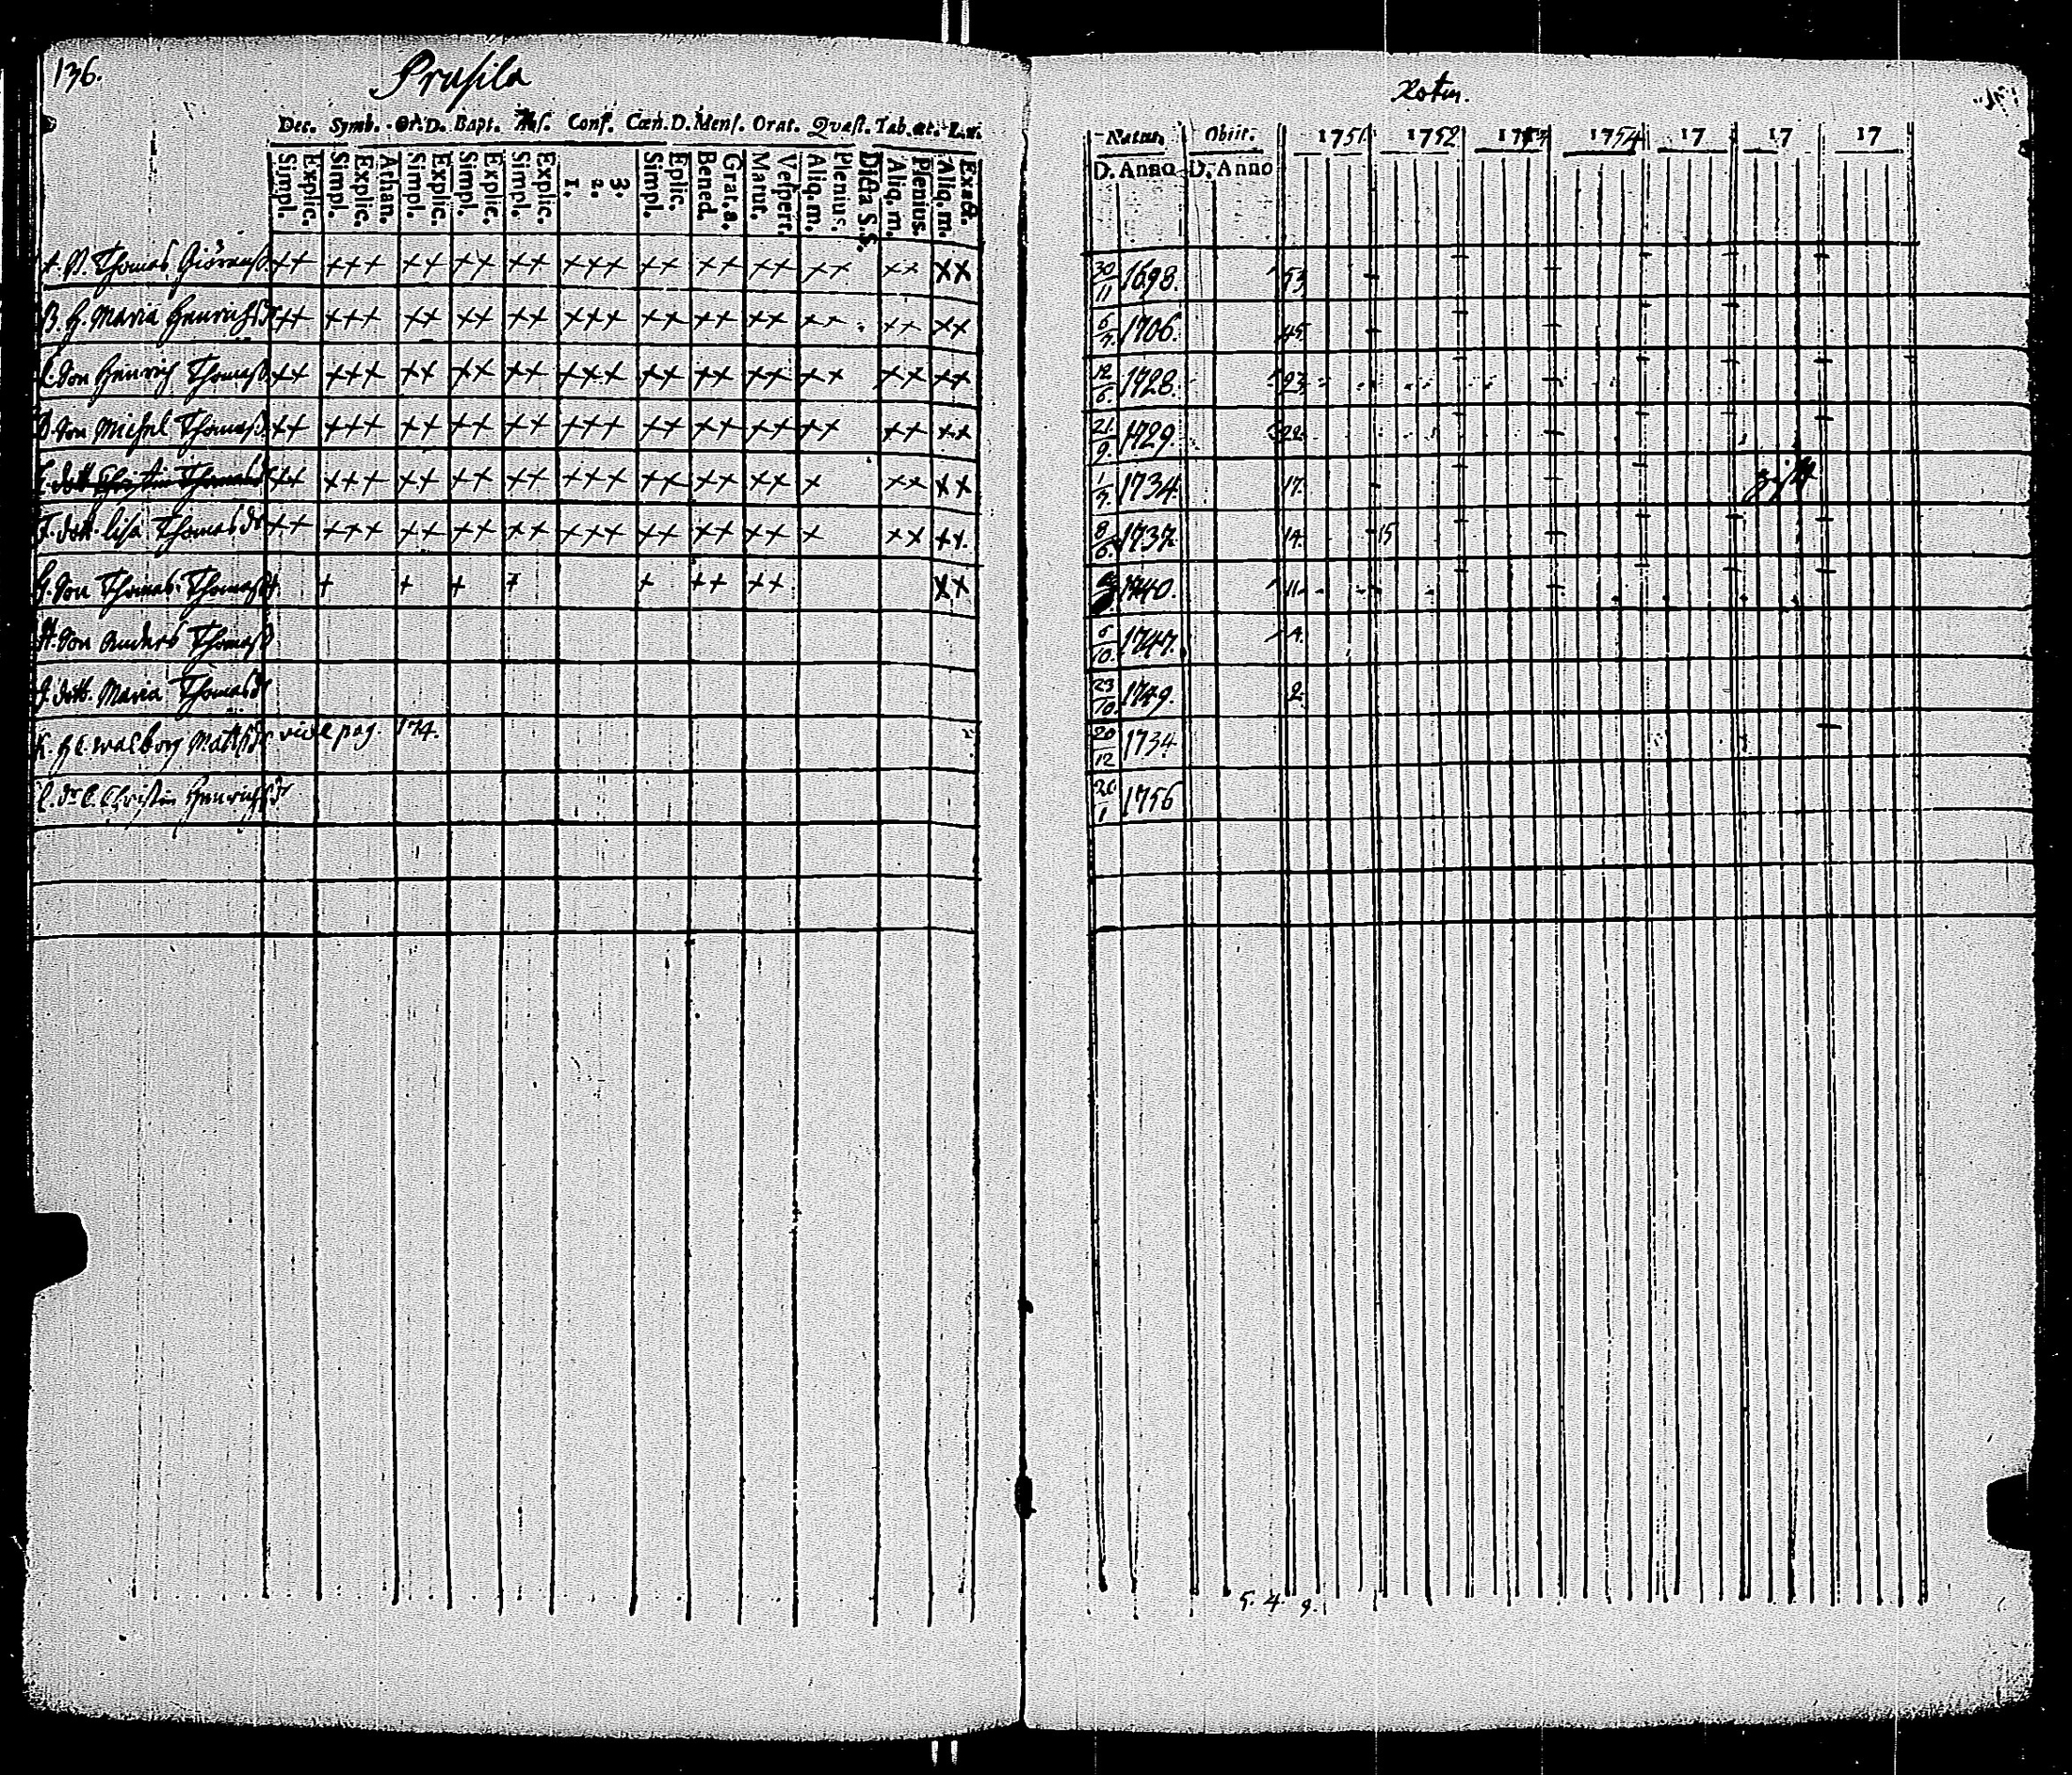 136. Prusila
Dec. Symb. Or. D. Bapt. Conf. Cœn. D. Menf. Orat. Quæst. Tab. œc. L. v.
Simpl. Explic. Simpl. Explic. Athan. Simpl. Explic. Simpl. Explic. Simpl. Explic. 1. 2. 3. Simpl. Eplic. Bened. Grat. a. Matut. Vespert. Aliq. m. Plenius. Dicta S. S. Aliq. m. Plenius Aliq. m. Exacte.
Thomas ++ +++ ++ ++ ++ +++ ++ ++ ++ ++ ++ ++
B. H. Maria Henrichsdr ++ +++ ++ ++ ++ +++ ++ ++ ++ ++ ++ ++
C. Son Henrich Thomass. ++ +++ ++ ++ ++ +++ ++ ++ ++ ++ ++ ++
D. Son Michel Thomass. ++ +++ ++ ++ ++ +++ ++ ++ ++ ++ ++ ++
E. dott Christin Thomasdr ++ +++ ++ ++ ++ +++ ++ ++ ++ + ++ ++
F. dott. Lisa Thomasdr ++ +++ ++ ++ ++ +++ ++ ++ ++ + ++ ++
G. Son Thomas Thomass. + + + + + + ++ ++ ++
H. Son Anders Thomass.
J. dott. Maria Thomasdr
K. Walborg Mattsdr vide pag. 174.
Christin Henrichsdr
Natus. Obiit. 1751 1752 1753 1754 17 17 17
D. Anno D. Anno
30/11 1698. 53
6/7 1706. 45
12/6 1728. 23
21/9 1729 22
1/7 1734 17
8/6 1737 14. 15
1740. 11
6/10 1747. 4
23/10 1749. 2
20/12 1734
26/1 1756
5. 4. 9.